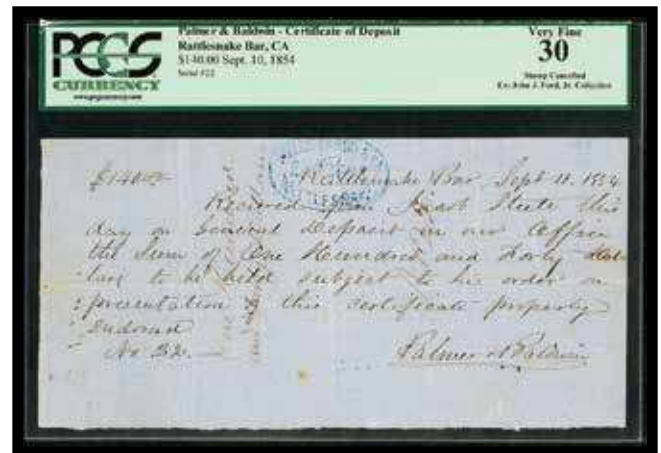 PCGS
CURRENCY
Palmer & Baldwin - Certificate of Deposit
Rattlesnake Bar, CA
$140.00 Sept. 10, 1854
Serial #22
Very Fine
30
Stamp Cancelled
Ex: John J. Ford, Jr. Collection
$140.00 Rattlesnake Bar Sept 10. 1854
Received from Steele this
day on General Deposit in our Office
the Sum of One Hundred and Forty dol
lars to be held subject to his order on
presentation of this certificate properly
endorsed
No 22.
Palmer & Baldwin